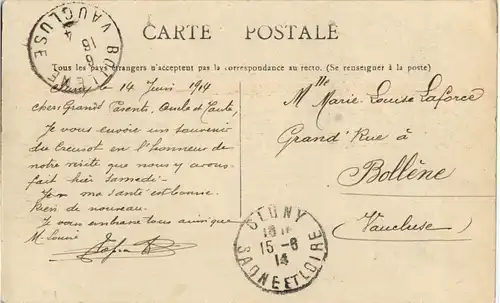 CARTE POSTALE
Tous les pays étrangers n'acceptent pas la correspondance au recto. (Se renseigner à la poste)
BOLLENE
VAUCLUSE
Cluny le 14 Juin 1914
chers Grands Parents, Oncle et Tante,
Je vous envoie un souvenir
du Creusot en l'honneur de
notre visite que nous y avons
fait hier samedi.
ma santé est bonne.
Rien de nouveau.
Je vous embrasse tous ainsi que
M. Louise
Mlle Marie-Louise Laforce
Grand'Rue à
Bollène
(Vaucluse)
CLUNY
15-6
14
SAONE ET LOIRE